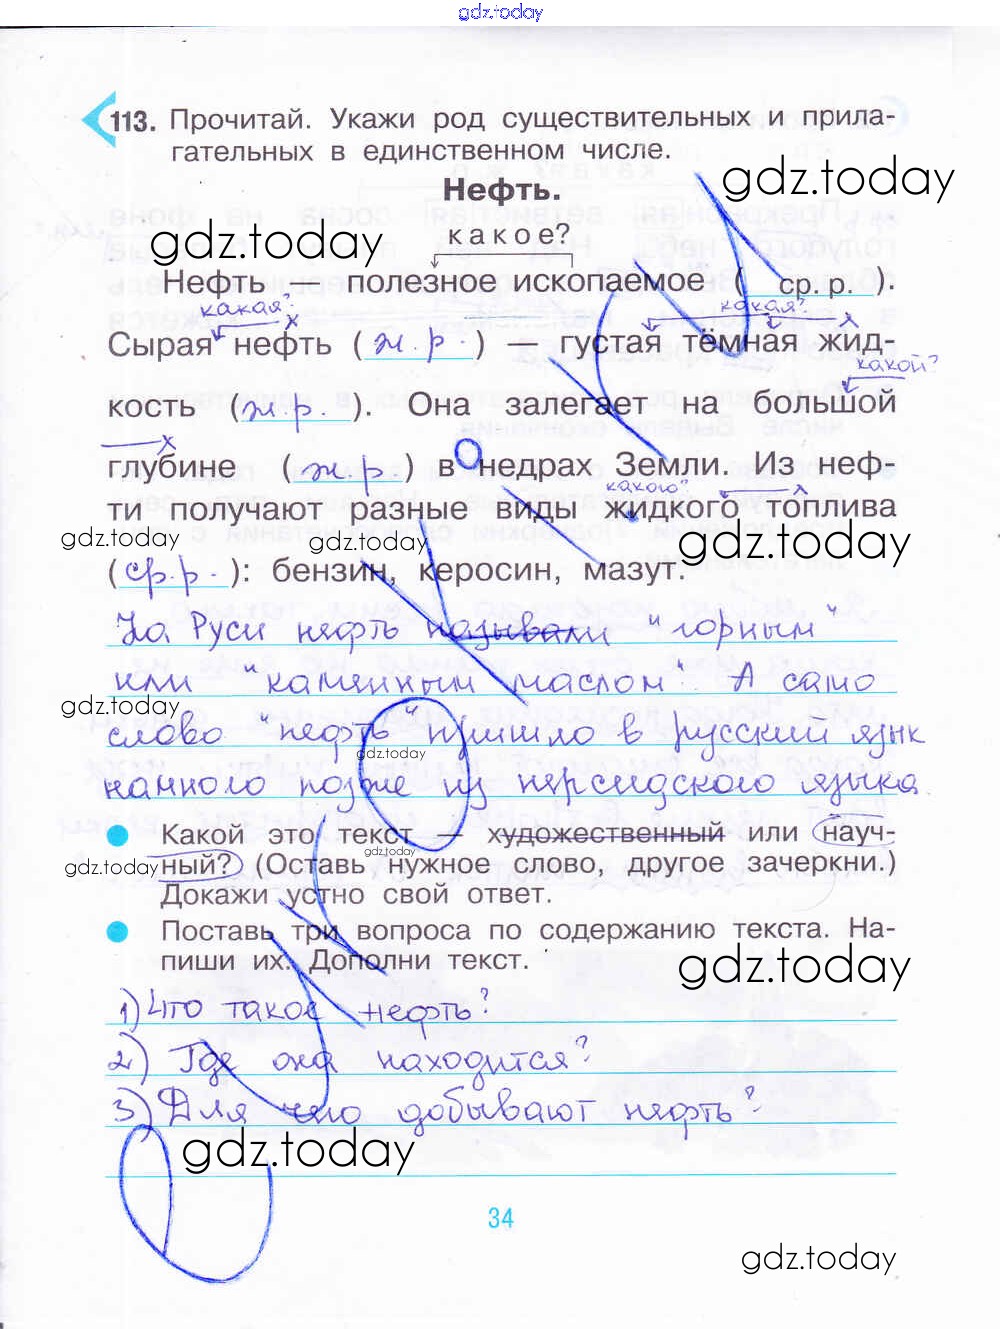 gdz.today
113. Прочитай. Укажи род существительных и прила-
гательных в единственном числе.
gdz.today
Нефть.
gdz.today
какое?
Нефть — полезное ископаемое ( ср. р. ).
какая? х какая? х
Сырая нефть ( ж. р. ) — густая тёмная жид-
какой?
кость ( ж. р. ). Она залегает на большой
х
глубине ( ж. р ) в недрах Земли. Из неф-
какого х
ти получают разные виды жидкого топлива
gdz.today gdz.today gdz.today
( ср. р. ): бензин, керосин, мазут.
На Руси нефть называли "горным"
или "каменным маслом". А само
gdz.today
слово "нефть" пришло в русский язык
gdz.today
намного позже из персидского языка.
Какой это текст — художественный или науч-
gdz.today
ный? (Оставь нужное слово, другое зачеркни.)
gdz.today
Докажи устно свой ответ.
Поставь три вопроса по содержанию текста. На-
пиши их. Дополни текст.
gdz.today
1) Что такое нефть?
2) Где она находится?
3) Для чего добывают нефть?
gdz.today
34
gdz.today